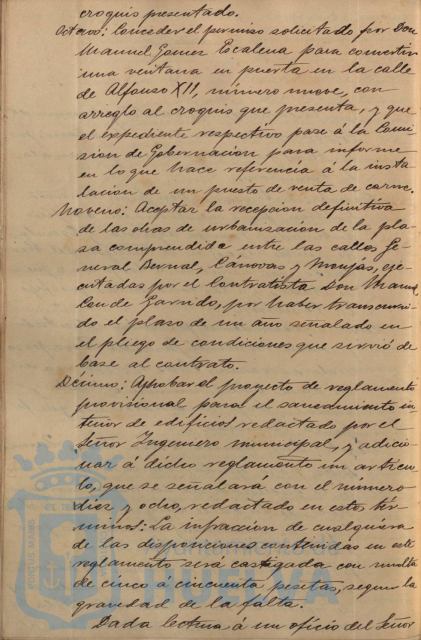 croquis presentado.
Octavo: Conceder el permiso solicitado por Don
Manuel Gomez Escalena para convertir
una ventana en puerta en la calle
de Alfonso XII, número nueve, con
arreglo al croquis que presenta, y que
el expediente respectivo pase á la Comi
sion de Gobernacion para informe
en lo que hace referencia á la insta
lacion de un puesto de venta de carne.
Noveno: Aceptar la recepcion definitiva
de las obras de urbanizacion de la pla
za comprendida entre las calles Ge
neral Bernal, Cánovas y Monjas, eje
cutadas por el Contratista Don Manuel
Conde Garrido, por haber transcurri
do el plazo de un año señalado en
el pliego de condiciones que sirvió de
base al contrato.
Décimo: Aprobar el proyecto de reglamento
provisional para el saneamiento in
terior de edificios redactado por el
Señor Ingeniero municipal, y adicio
nar á dicho reglamento un artícu
lo, que se señalará con el número
diez y ocho, redactado en estos tér
minos: La infraccion de cualquiera
de las disposiciones contenidas en este
reglamento será castigada con multa
de cinco á cincuenta pesetas, segun la
gravedad de la falta.
Dada lectura á un oficio del Señor
PORTUS MARIS
HUELVA